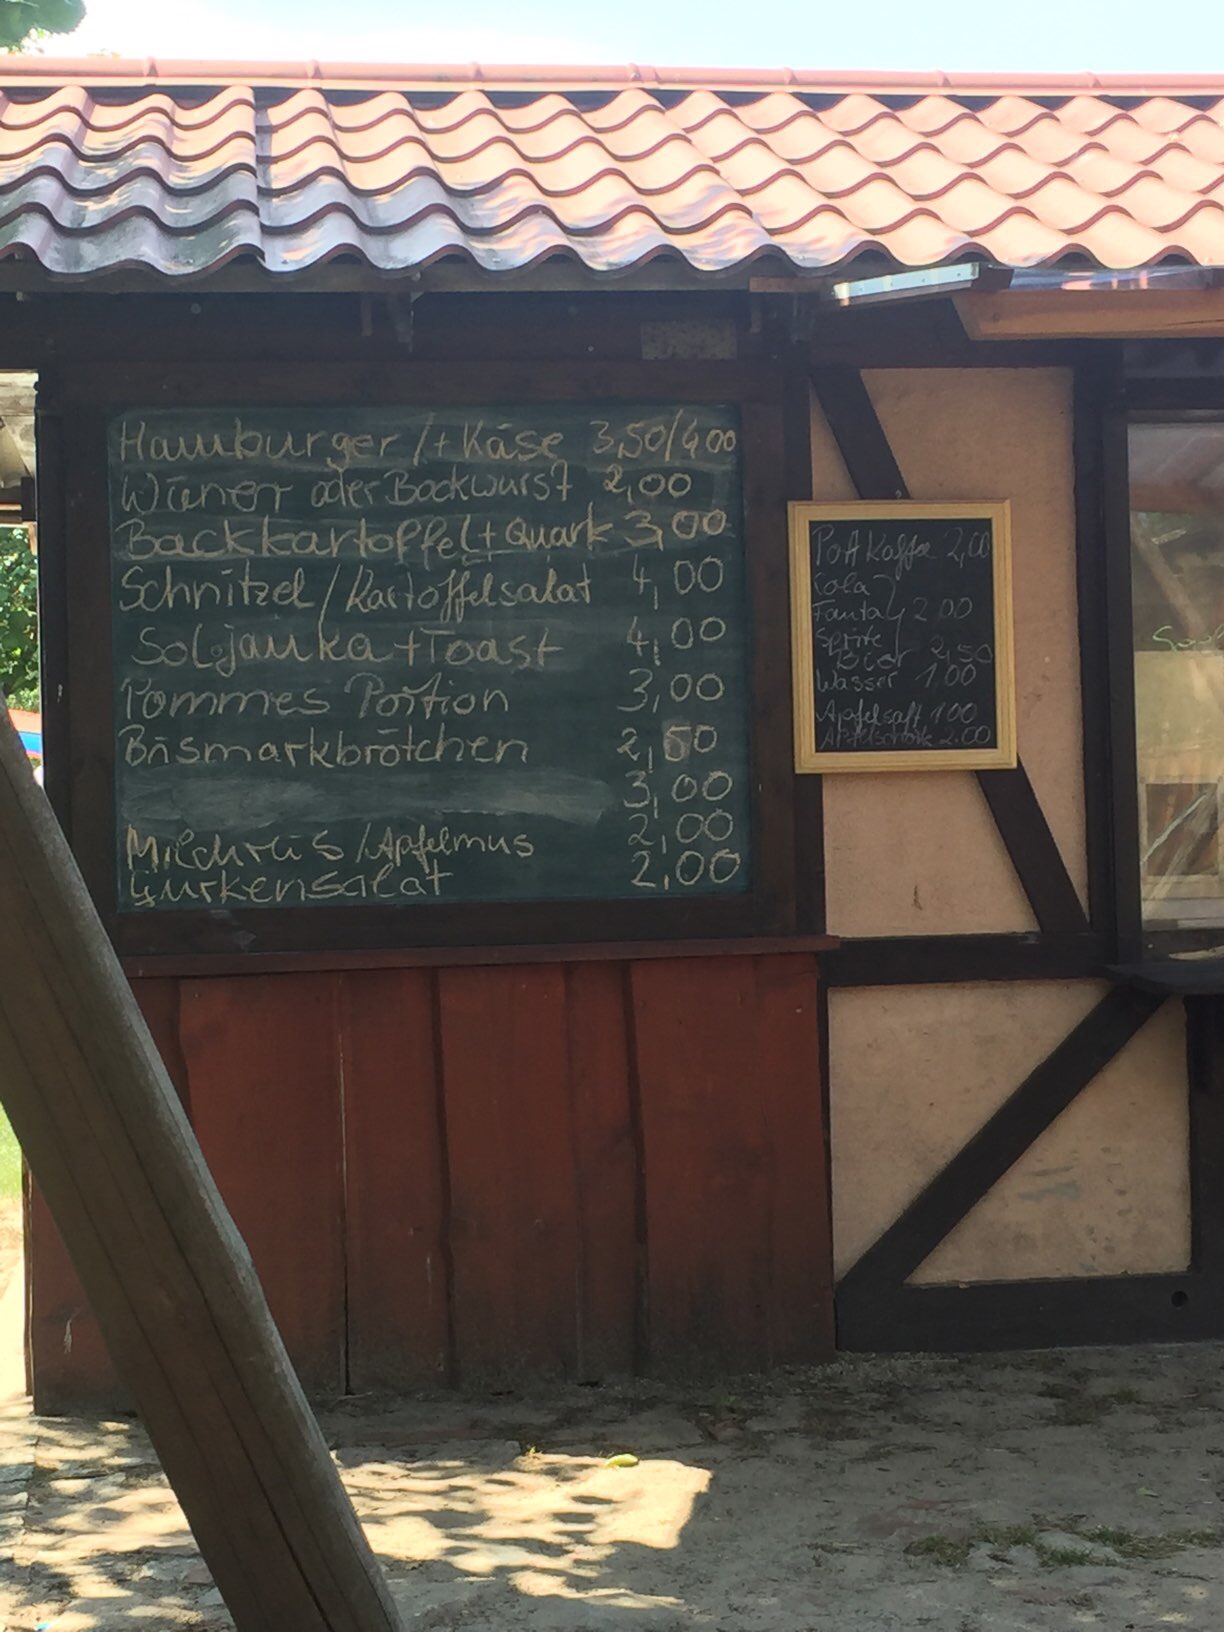 Hamburger /+ Käse 3,50/4,00
Wiener oder Bockwurst 2,00
Backkartoffel + Quark 3,00
Schnitzel / Kartoffelsalat 4,00
Soljanka + Toast 4,00
Pommes Portion 3,00
Bismarkbrötchen 2,50
3,00
Milchreis / Apfelmus 2,00
Gurkensalat 2,00
Pott Kaffee 2,00
Cola
Fanta 2,00
Sprite
Bier 2,50
Wasser 1,00
Apfelsaft 1,00
Apfelschorle 2.00